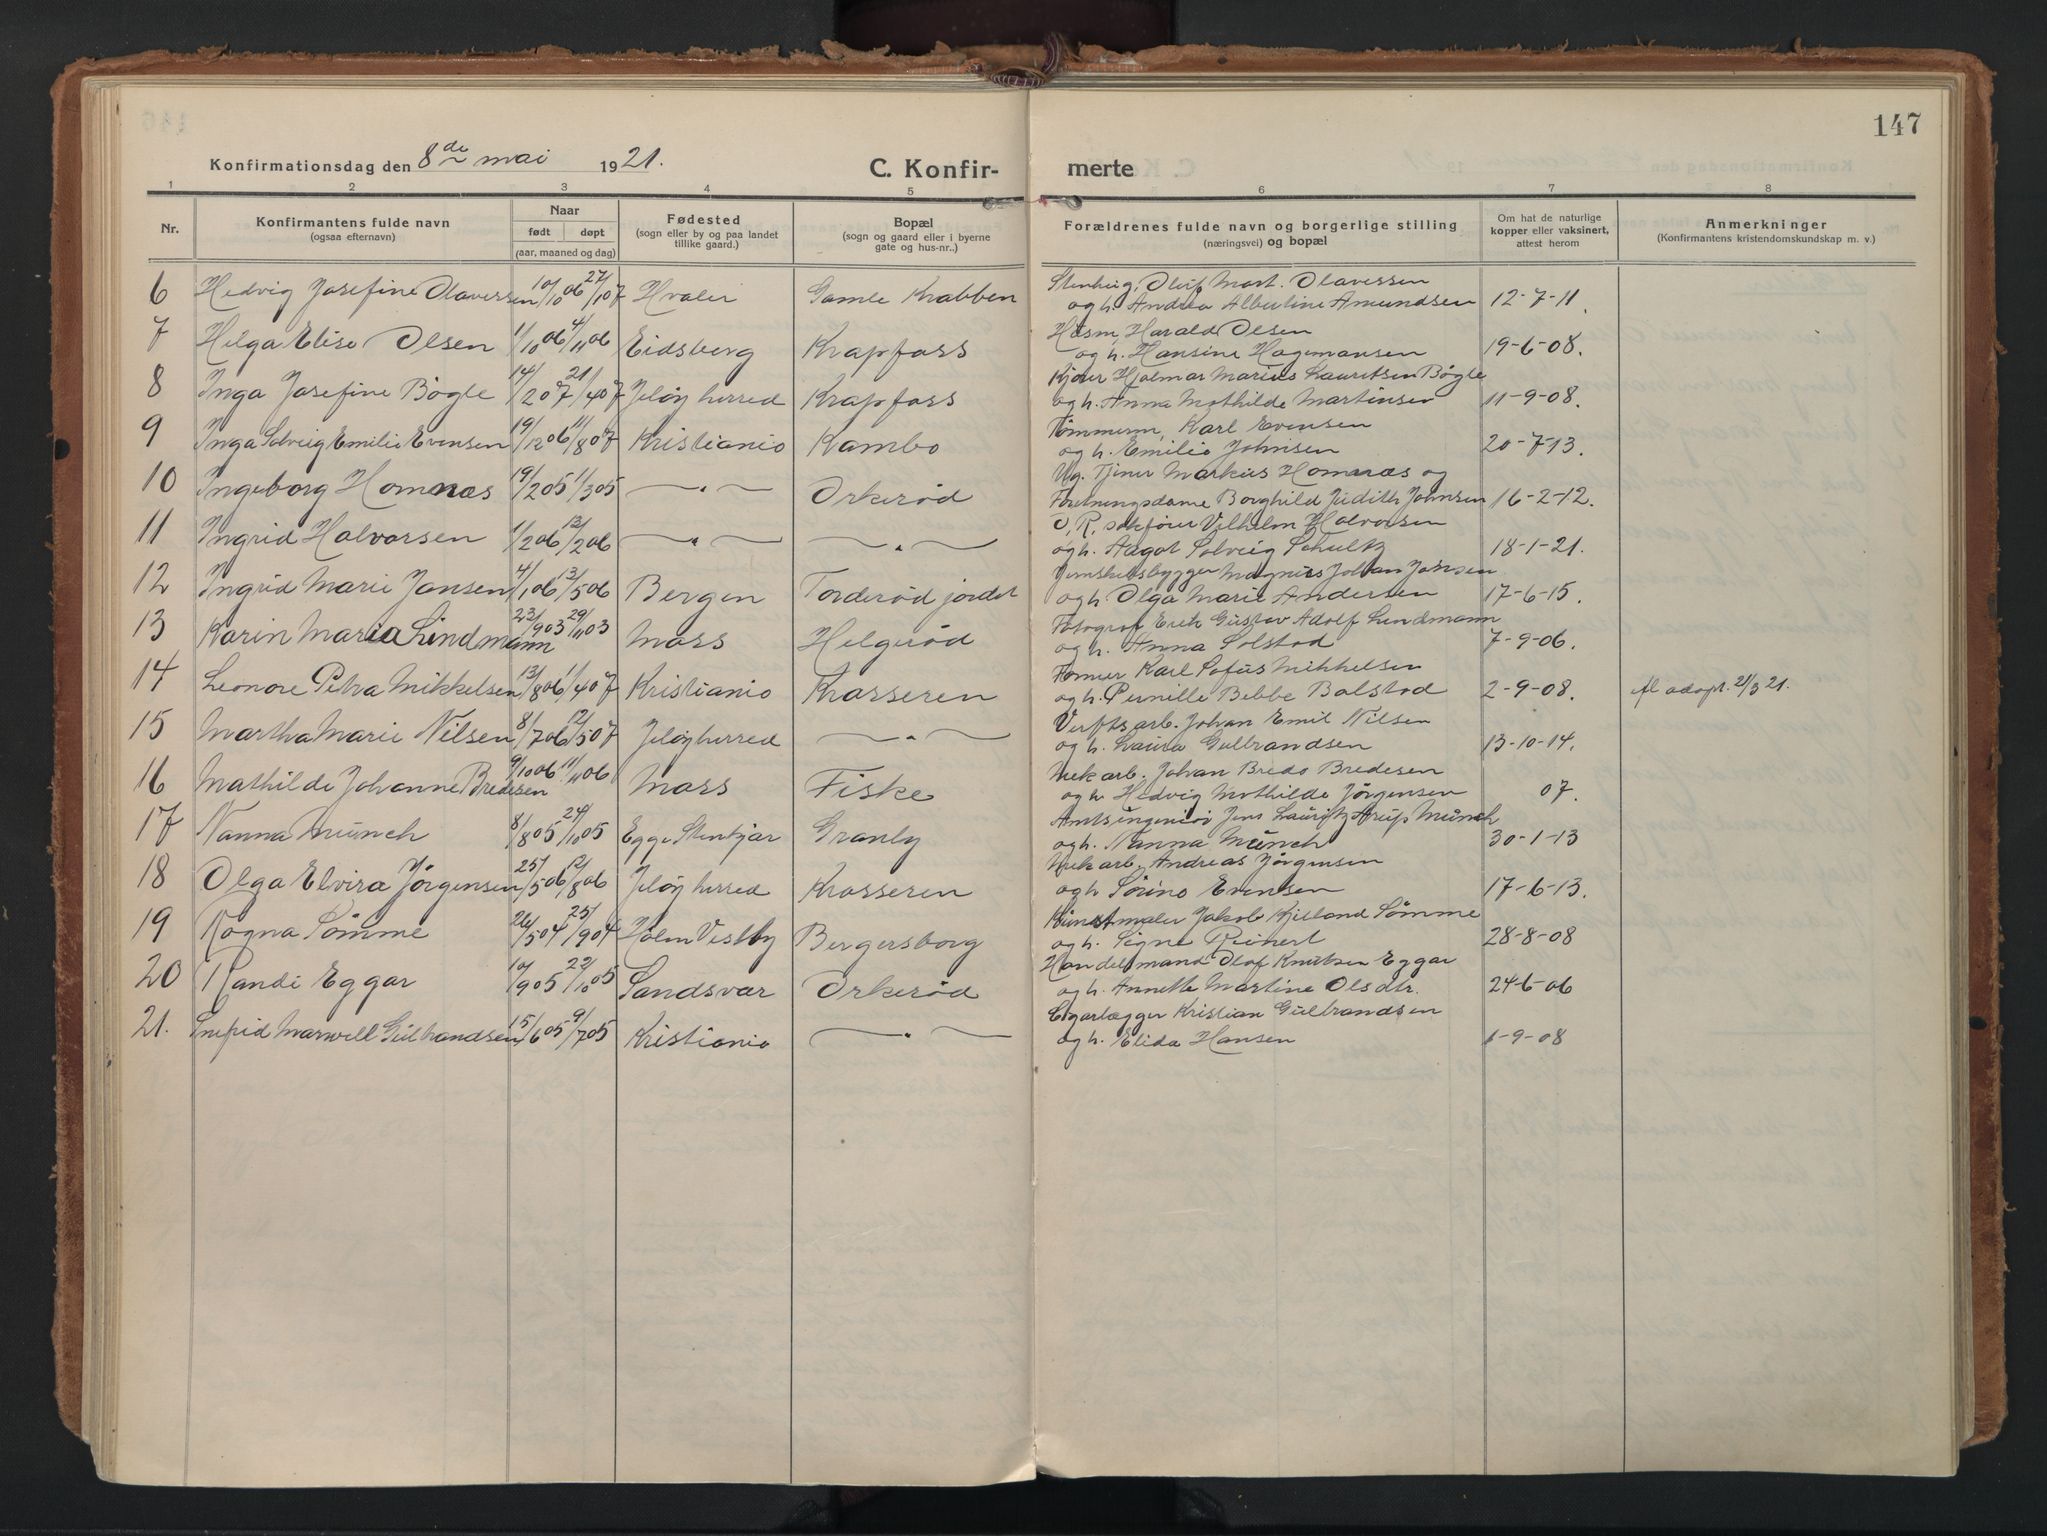 147
Konfirmationsdag den 8de mai 1921.
C. Konfir- merte
1 2 3 4 5 6 7 8
Nr.
Konfirmantens fulde navn
(ogsaa efternavn)
Naar
født døpt
(aar, maaned og dag)
Fødested
(sogn eller by og paa landet
tillike gaard.)
Bopæl
(sogn og gaard eller i byerne
gate og hus-nr..)
Forældrenes fulde navn og borgerlige stilling
(næringsvei) og bopæl
Om hat de naturlige
kopper eller vaksinert,
attest herom
Anmerkninger
(Konfirmantens kristendomskundskap m. v.)
6 Hedvig Josefine Olavessen 10/10 06 27/10 07 Hvaler Gamle Krabben Stenhug, Oluf Mart. Olavessen
og h. Andrea Albertine Amundsen 12-7-11.
7 Helga Elise Olsen 1/10 06 4/11 06 Eidsberg Krapfoss Husm, Harald Olsen
og h. Hansine Hagemansen 19-6-08.
8 Inga Josefine Bögle 14/2 07 21/4 07 Jelöy herred Krapfoss Kjører Hjalmar Marius Lauritsen Bögle
og h. Anna Mathilde Martinsen 11-9-08.
9 Inga Solveig Emilie Evensen 19/12 06 11/8 07 Kristiania Kambo Tömmerm, Karl Evensen
og h. Emilie Johnsen 20-7-13.
10 Ingeborg Homnæs 19/2 05 1/3 05 — " — Orkeröd Ug. Tjener Markus Homnæs og
Foretningsdame Borghild Judith Johnsen 16-2-12.
11 Ingrid Halvorsen 1/2 06 13/2 06 — " — — " — O, R, sakfører Vilhelm Halvorsen
og h. Aagot Solveig Schultz 18-1-21.
12 Ingrid Marie Jansen 4/1 06 13/5 06 Bergen Torderöd jordet Jernskibsbygger Magnus Johan Jansen
og h. Olga Marie Andersen 17-6-15.
13 Karin Maria Lindmann 23/9 03 29/11 03 Moss Helgeröd Fotograf Erik Gustav Adolf Lindmann
og h. Anna Solstad 7-9-06.
14 Leonore Petra Mikkelsen 13/8 06 1/4 07 Kristiania Krosseren Former Karl Sofus Mikkelsen
og h. Pernille Bibbe Bolstad 2-9-08. adopt. 21/3 21.
15 Martha Marie Nilsen 8/7 06 12/5 07 Jelöy herred — " — Verftsarb. Johan Emil Nilsen
og h. Laura Gulbrandsen 13-10-14.
16 Mathilde Johanne Bredesen 9/10 06 11/11 06 Moss Fiske Mek arb. Johan Bredo Bredesen
og h Hedvig Mathilde Jörgensen 07.
17 Nanna Münch 8/8 05 24/10 05 Egge Stenkjær Granly Amtsingeniör Jens Lauritz Arup Münch
og h. Nanna Münch 30-1-13
18 Olga Elvira Jörgensen 25/5 06 12/8 06 Jelöy herred Krosseren Mek arb. Andreas Jörgensen
og h Sörine Evensen 17-6-13.
19 Ragna Sömme 26/5 04 25/9 04 Hölen Vestby Bergersborg Kunstmaler Jakob Kjelland Sömme
og h. Signe Reinert 28-8-08
20 Randi Eggar 10/9 05 22/10 05 Sandsvær Orkeröd Handelsmand Olaf Knutsen Eggar
og h. Annette Martine Olsdtr. 24-6-06
21. Snefrid Marwell Gulbrandsen 15/6 05 9/7 05 Kristiania — " — Cigarlægger Kristian Gulbrandsen
og h. Elida Hansen 1-9-08